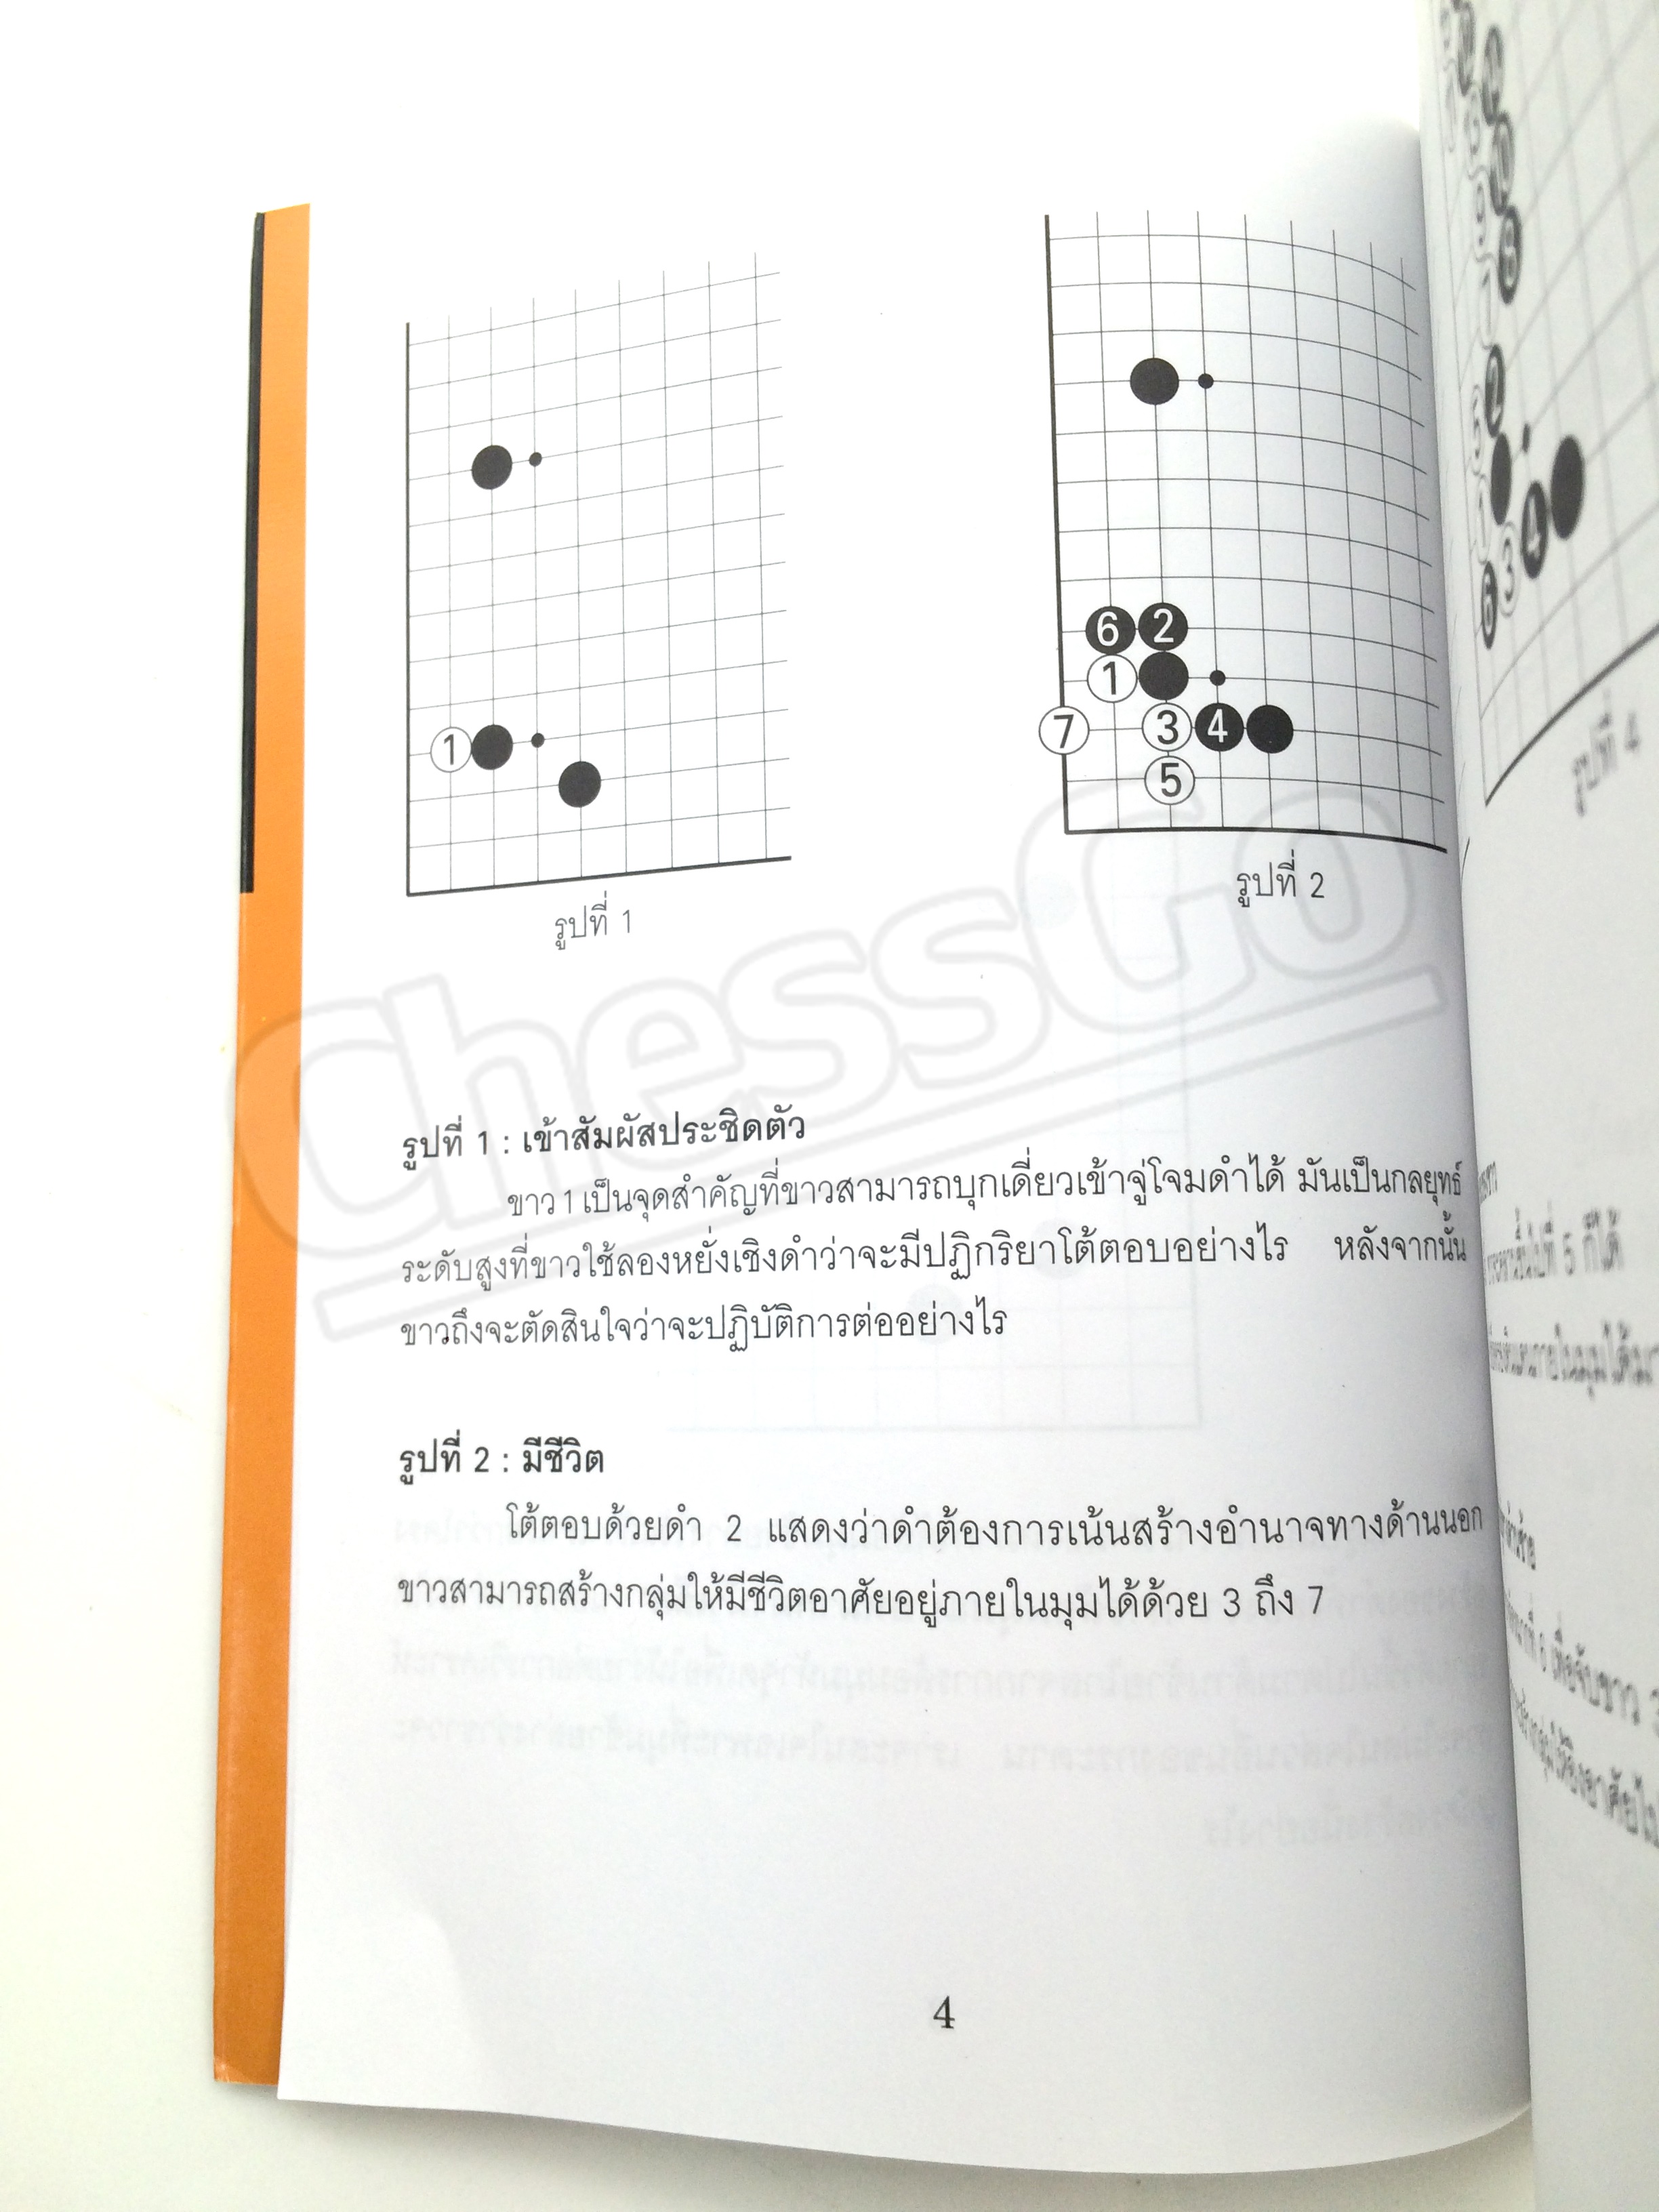 1
6 2
1
7 3 4
5
รูปที่ 1
รูปที่ 2
ChessGo
รูปที่ 1 : เข้าสัมผัสประชิดตัว
ขาว 1 เป็นจุดสำคัญที่ขาวสามารถบุกเดี่ยวเข้าจู่โจมดำได้ มันเป็นกลยุทธ์
ระดับสูงที่ขาวใช้ลองหยั่งเชิงดำว่าจะมีปฏิกริยาโต้ตอบอย่างไร หลังจากนั้น
ขาวถึงจะตัดสินใจว่าจะปฏิบัติการต่ออย่างไร
รูปที่ 2 : มีชีวิต
โต้ตอบด้วยดำ 2 แสดงว่าดำต้องการเน้นสร้างอำนาจทางด้านนอก
ขาวสามารถสร้างกลุ่มให้มีชีวิตอาศัยอยู่ภายในมุมได้ด้วย 3 ถึง 7
4
รูปที่ 4
2
4
3
6
8
ที่ 5 ก็ได้